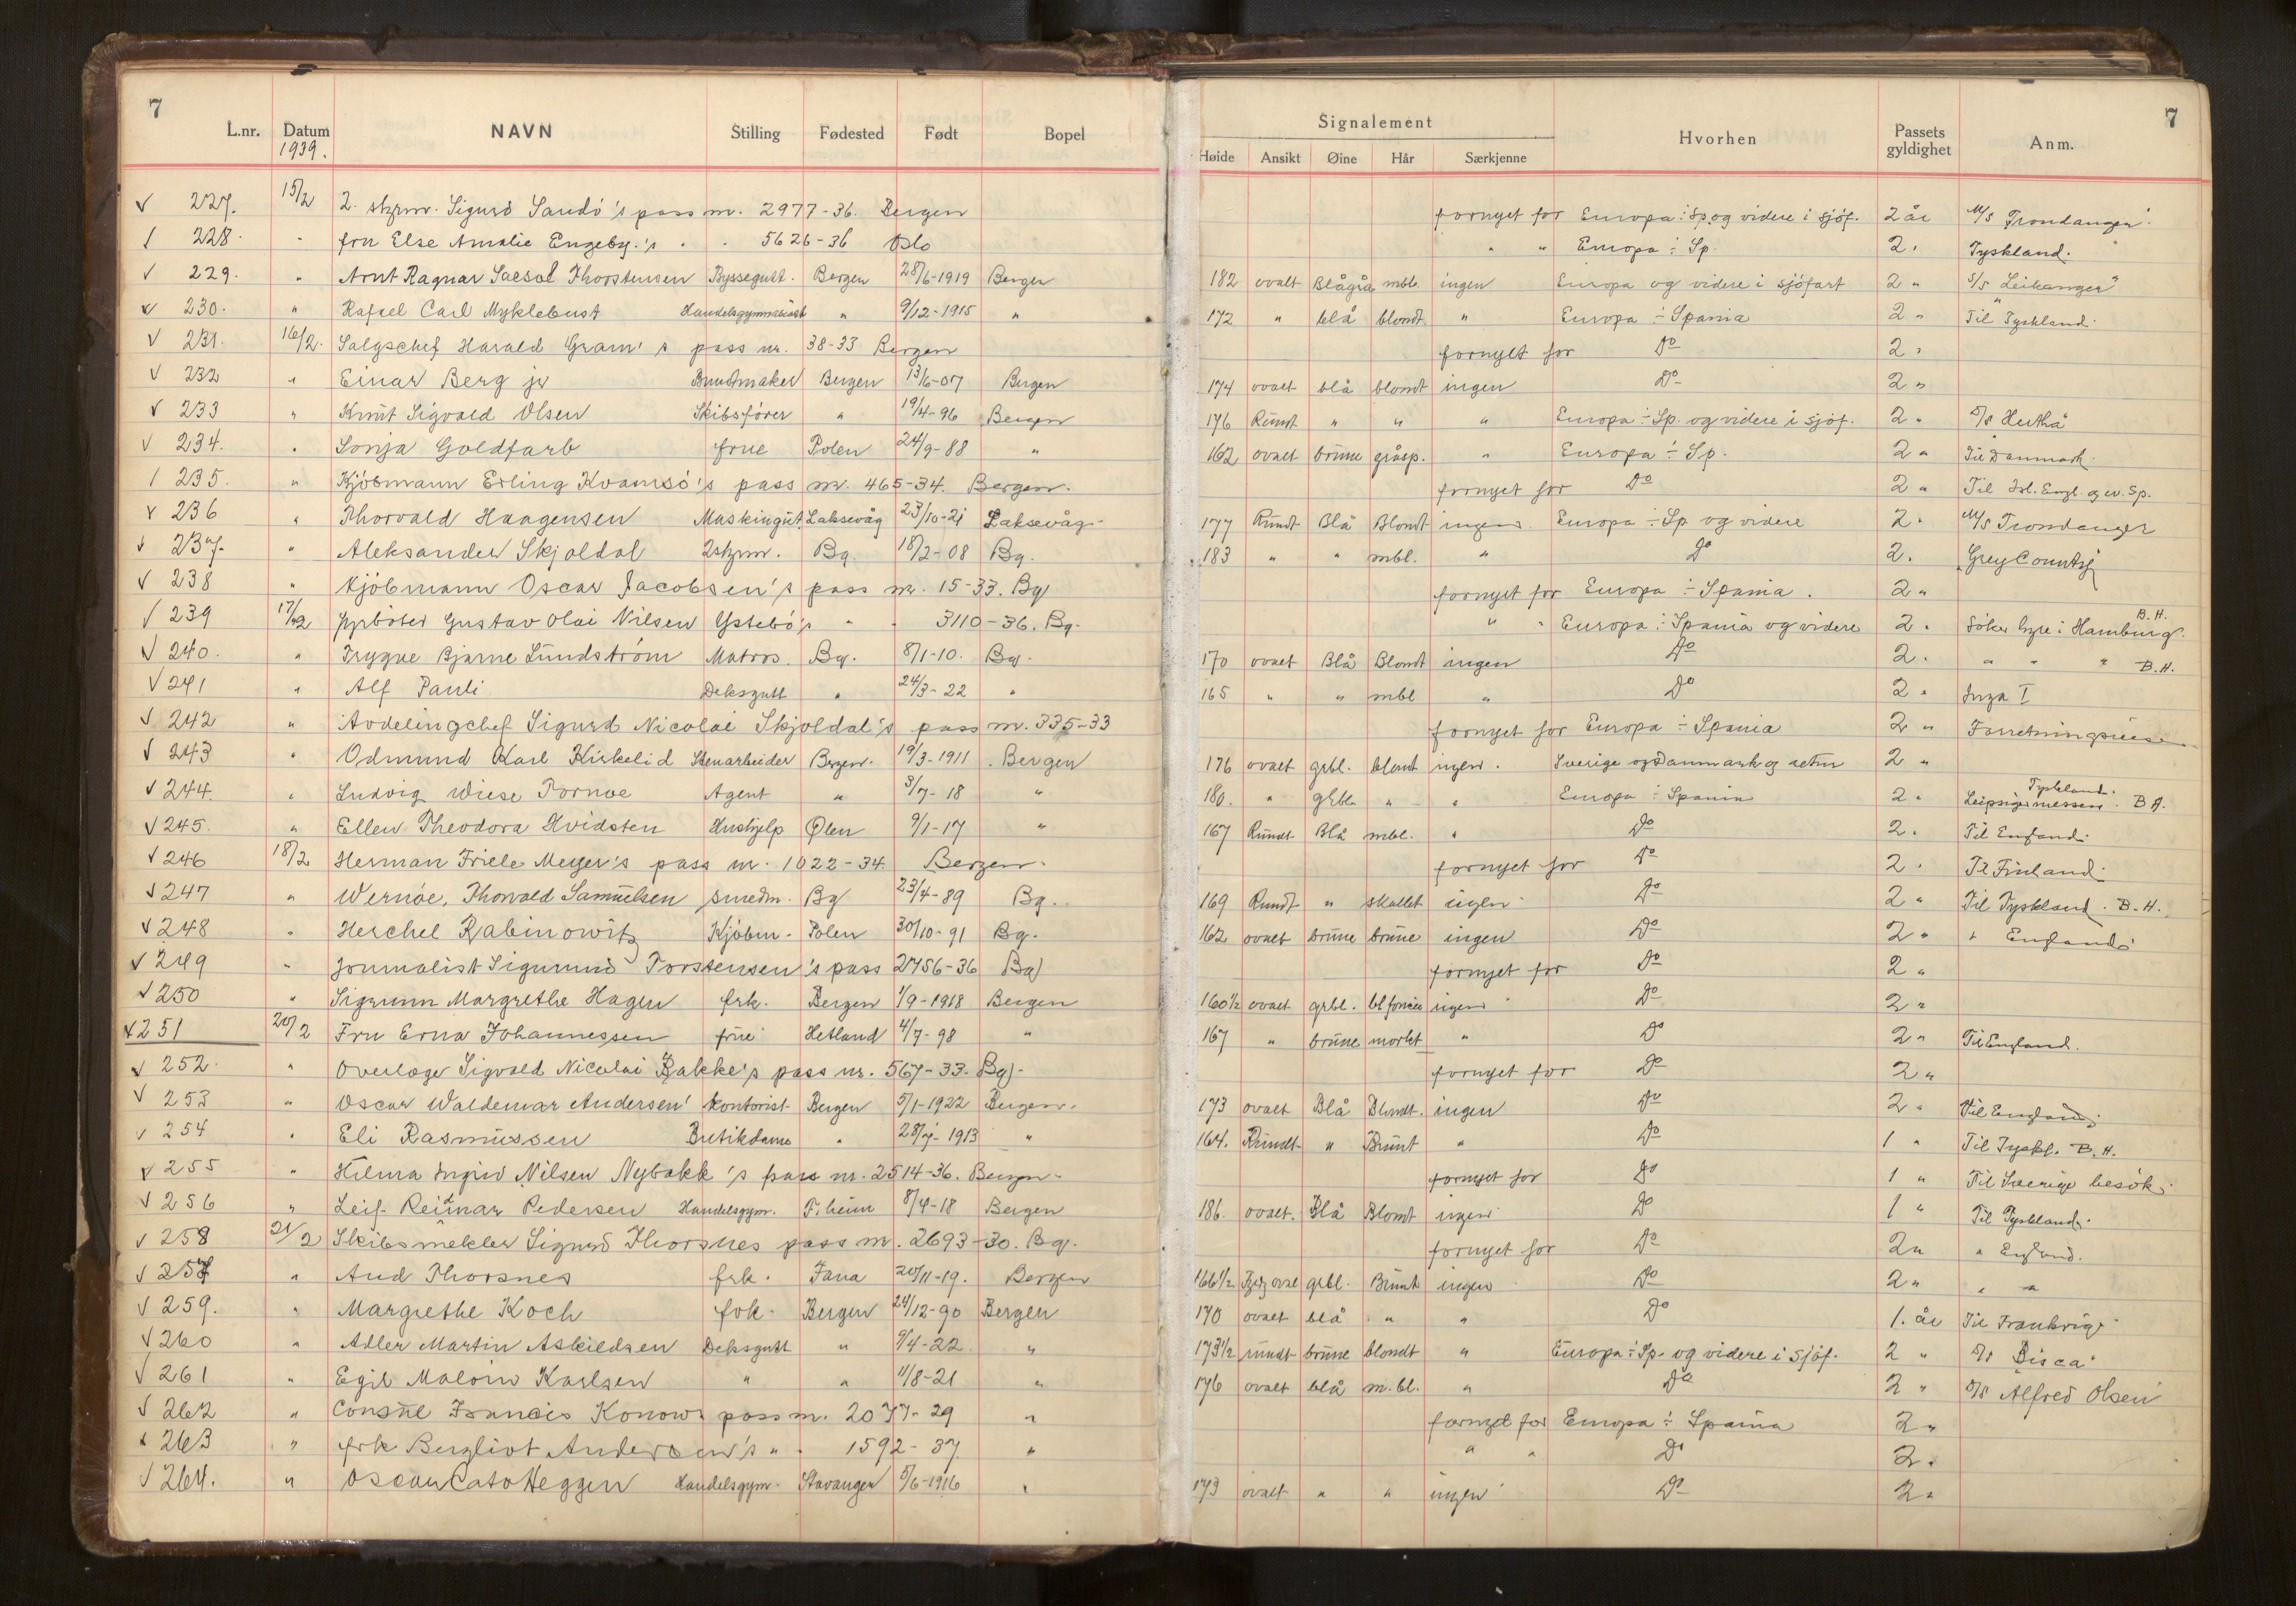 7
L.nr. Datum NAVN Stilling Fødested Født Bopel
1939.
Signalement
Høide Ansikt Øine Hår Særkjenne Hvorhen Passets gyldighet Anm.
7
227. 15/2 2. styrm. Sigurd Sandö's pass nr. 2977-36. Bergen fornyet for Europa ÷ Sp. og videre i sjöf. 2 år M/S Trondanger.
228. " fru Else Amalie Engebg.'s " " 5626-36 Oslo " " Europa ÷ Sp. 2. Tyskland.
229. " Arnt Ragnar Thorstensen Byssegutt. Bergen 28/6-1919 Bergen 182 ovalt Blågrå mbl. ingen Europa og videre i sjöfart 2 " S/S "Leikanger"
230. " Rafael Carl Myklebust Handelsgymnasiast " 9/12-1915 " 172 " blå blondt " Europa ÷ Spania 2 " Til Tyskland.
231. 16/2. Salgschef Harald Gram's pass nr. 38-33 Bergen fornyet for Do 2 "
232 " Einar Berg jr Buntmaker Bergen 13/6-07 Bergen 174 ovalt blå blondt ingen Do 2 "
233 " Knut Sigvald Olsen Skibsförer " 19/4-96 Bergen 176 Rundt " " " Europa ÷ Sp. og videre i sjöf. 2 " S/S Hertha
234. " Sonja Goldfarb frue Polen 24/9-88 " 162 ovalt brune gråsp. " Europa ÷ Sp. 2 " Til Danmark.
235. " Kjöbmann Erling Kvamsö's pass nr. 465-34. Bergen. fornyet for Do 2 " Til Isl. Engl. og ev. Sp.
236 " Thorvald Haagensen Maskingut. Laksevåg 23/10-21 Laksevåg. 177 Rundt Blå Blondt ingen Europa ÷ Sp og videre 2. M/S Trondanger
237. " Aleksander Skjoldal 2styrm. Bg. 18/2-08 Bg. 183 " " mbl. " Do 2. Grey County
238 " Kjöbmann Oscar Jacobsen's pass nr. 15-33. Bg. fornyet for Europa ÷ Spania. 2 "
239 17/2 Fyrböter Gustav Olai Nilsen Ystebö's " " 3110-36. Bg. " " Europa ÷ Spania og videre 2. Söker hyre i Hamburg. B.H.
240. " Trygve Bjarne Lundström Matros. Bg. 8/1-10. Bg. 170 ovalt Blå Blondt ingen Do 2. " " " B.H.
241 " Alf Pauli Deksgutt " 24/3-22 " 165 " " mbl " Do 2 " Inga I
242 " Avdelingchef Sigurd Nicolai Skjoldal's pass nr. 335-33 fornyet for Europa ÷ Spania 2 " Forretningsreise
243 " Odmund Karl Kirkelid Stenarbeider Bergen. 19/3-1911. Bergen 176 ovalt grbl. blondt ingen. Sverige og Danmark og retur 2 "
244. " Ludvig Wiese Tornøe Agent " 3/7-18 " 180. " grbl. " " Europa ÷ Spania 2 " Tyskland. Leipzigermessen. B.H.
245. " Ellen Theodora Hvidsten Hushjelp Ølen 9/1-17 " 167 Rundt Blå mbl. " Do 2. Til England.
246 18/2 Herman Friele Meyer's pass nr. 1022-34. Bergen. fornyet for Do 2. Til Finland.
247 " Wernøe, Thorvald Samuelsen smedm. Bg 23/4-89 Bg. 169 Rundt " skallet ingen Do 2 " Til Tyskland. B.H.
248 " Herschel Rabinowitz Kjöbm. Polen 30/10-91 Bg. 162 ovalt brune brune ingen Do 2 " " England.
249 " Journalist Sigmund Torstensen's pass 2756-36 Bg) fornyet for Do 2 "
250 " Sigrunn Margrethe Hagen frk. Bergen 1/9-1918 Bergen 160½ ovalt grbl. ingen Do 2 "
251 20/2 Fru Erna Johannessen frue Hetland 4/7-98 " 167 " brune mørkt " Do 2 " Til England.
252. " Overlæge Sigvald Nicolai Bakke's pass nr. 567-33. Bg). fornyet for Do 2 "
253 " Oscar Waldemar Andersen Kontorist. Bergen 5/1-1922 Bergen. 173 ovalt Blå Blondt. ingen Do 2 " Til England.
254 " Eli Rasmussen Butikdame " 28/7-1913 " 164. Rundt " Brunt " Do 1 " Til Tyskl. B.H.
255 " Hilma Ingrid Nilsen Nybakk's pass nr. 2514-36. Bergen. fornyet for Do 1 " Til Sverige besök.
256 " Leif Reidmar Pedersen Handelsgym. F.heim 8/4-18 Bergen 186. ovalt. Blå Blondt ingen Do 1 " Til Tyskland.
258 21/2 Skibsmekler Sigurd Thorsnes pass nr. 2693-30. Bg. fornyet for Do 2 " " England.
257 " Aud Thorsnes frk. Fana 20/11-19. Bergen 166½ grbl. Brunt ingen Do 2 " " "
259. " Margrethe Koch frk. Bergen 24/12-90 Bergen 170 ovalt blå " " Do 1. år Til Frankrig.
260 " Adler Martin Askildsen Deksgutt " 9/4-22. " 173½ rundt brune blondt " Europa ÷ Sp. og videre i sjöf. 2 " S/S Bisca.
261 " Egil Karlsen " " 11/8-21 " 176 ovalt blå m.bl. " Do 2 " S/S Alfred Olsen
262 " Consul Francis Konow's pass nr. 2077-29 " fornyet for Europa ÷ Spania 2 "
263 " frk Bergliot Andersen's " " 1592-37 " " " Do 2.
264. " Oscar Cato Heggen Handelsgym. Stavanger 5/6-1916 " 173 ovalt " " ingen Do 2 "